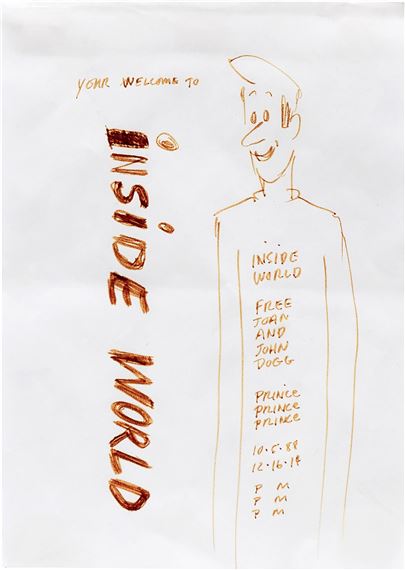 YOUR WELCOME TO
INSIDE WORLD
INSIDE
WORLD
FREE
JOAN
AND
JOHN
DOGG
PRINCE
PRINCE
PRINCE
10.5.88
12.16.14
P M
P M
P M